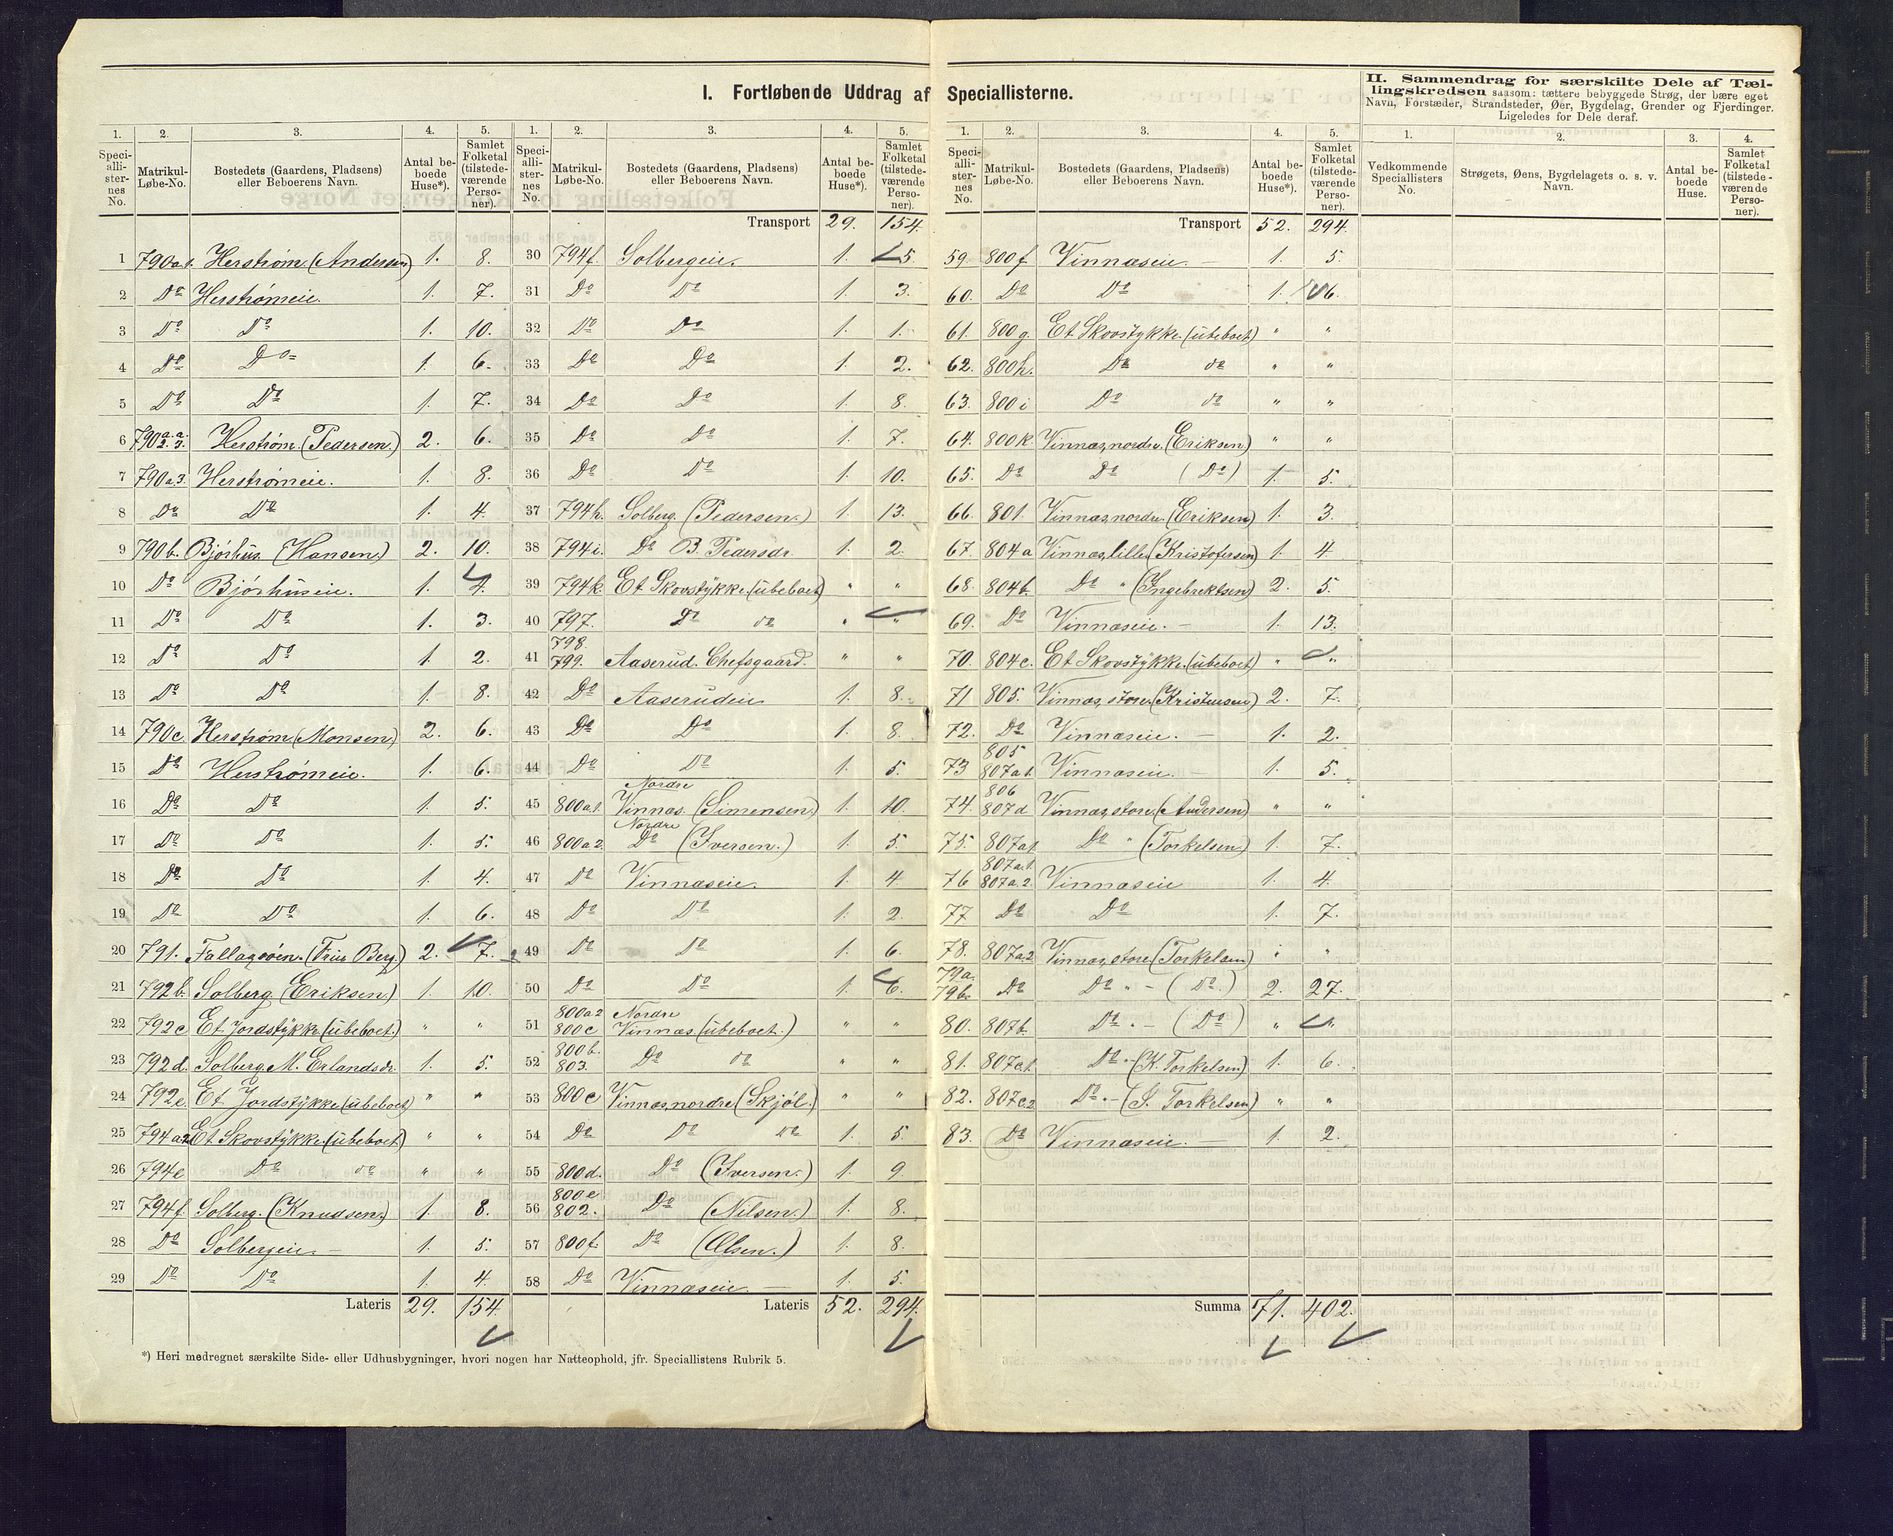 I. Fortløbende Uddrag af Speciallisterne.
II. Sammendrag for særskilte Dele af Tællingskredsen saasom: tættere bebyggede Strøg, der bære eget
Navn, Forstæder, Strandsteder, Øer, Bygdelag, Grender og Fjerdinger.
Ligeledes for Dele deraf.
1. 2. 3. 4. 5. 1. 2. 3. 4. 5. 1. 2. 3. 4. 5. 1. 2. 3. 4.
Speciallisternes No. Matrikul-Løbe-No. Bostedets (Gaardens, Pladsens) eller Beboerens Navn. Antal beboede Huse*). Samlet Folketal (tilstedeværende Personer).
Speciallisternes No. Matrikul-Løbe-No. Bostedets (Gaardens, Pladsens) eller Beboerens Navn. Antal beboede Huse*). Samlet Folketal (tilstedeværende Personer).
Speciallisternes No. Matrikul-Løbe-No. Bostedets (Gaardens, Pladsens) eller Beboerens Navn. Antal beboede Huse*). Samlet Folketal (tilstedeværende Personer).
Vedkommende Speciallisters No. Strøgets, Øens, Bygdelagets o. s. v. Navn. Antal beboede Huse. Samlet Folketal (tilstedeværende Personer).
1 790a1. Herstrøm (Andersen) 1. 8.
2 Do Herstrømeie. 1. 7.
3 Do Do 1. 10.
4 Do Do 1. 6.
5 Do Do 1. 7.
6 790 a.2. a.3. Herstrøm. (Pedersen.) 2. 6.
7 790a3 Herstrømeie. 1. 8.
8 Do Do 1. 4.
9 790b. Bjørhus (Hansen.) 2. 10.
10 Do Bjørhuseie. 1. 4.
11 Do Do 1. 3.
12 Do Do 1. 2.
13 Do Do 1. 8.
14 790c. Herstrøm (Monsen) 2. 6.
15 Do Herstrømeie. 1. 6.
16 Do Do 1. 5.
17 Do Do 1. 5.
18 Do Do 1. 4.
19 Do Do 1. 6.
20 791. Fallagsøen. (Berg.) 2. 7.
21 792b. Solberg (Eriksen.) 1. 10.
22 792c Et Jordstykke (ubeboet.) " "
23 792d. Solberg M. Erlandsdr. 1. 5.
24 792e. Et Jordstykke (ubeboet) " "
25 794a2 Et Skovstykke (ubeboet) " "
26 794e Do do " "
27 794f. Solberg. (Knudsen.) 1. 8.
28 Do Solbergeie. 1. 5.
29 Do Do 1. 4.
Lateris 29. 154.
Transport 29. 154.
30 794f. Solbergeie. 1. 5.
31 Do Do 1. 3.
32 Do Do 1. 1.
33 Do Do 1. 2.
34 Do Do 1. 8.
35 Do Do 1. 7.
36 Do Do 1. 10.
37 794h. Solberg. (Pedersen.) 1. 13.
38 794i. Do B. Pedersdr. 1. 2.
39 794k. Et Skovstykke (ubeboet) " "
40 797. Do do " "
41 798. 799. Aaserud. Chefsgaard. " "
42 Do Aaserudeie 1. 8.
43 Do Do 1. 8.
44 Do Do 1. 5.
45 800a.1. Nordre Vinnæs. (Simensen.) 1. 10.
46 800a2. Nordre Do (Iversen.) 1. 5.
47 Do Vinnæseie. 1. 4
48 Do Do 1. 2.
49 Do Do 1. 6.
50 Do Do 1. 6.
51 800a2 800c Nordre Vinnæs (ubeboet.) " "
52 800b. 803. Do do " "
53 800c Vinnæs, nordre (Skjøl.) " "
54 Do Do Do 1. 5.
55 800d. Do (Iversen.) 1. 9
56 800e 802. Do (Nilsen.) 1. 8.
57 800f. Do (Olsen.) 1. 8.
58 Do Vinnæseie 1. 5.
Lateris 52. 294.
Transport 52. 294.
59. 800f Vinnæseie. 1. 5
60. Do Do 1. 6.
61. 800g. Et Skovstykke. (ubeboet) " "
62. 800h. Do do " "
63. 800i Do do " "
64. 800k. Vinnæs, nordre. (Eriksen) " "
65. Do Do (Do) 1. 5.
66. 801. Vinnæs, nordre. (Eriksen) 1. 3.
67. 804a Vinnæs, lille (Kristofersen) 1. 4
68. 804b. Do " (Ingebrektsen) 2. 5.
69. Do Vinnæseie. 1. 13.
70. 804c. Et Skovstykke. (ubeboet) " "
71 805. Vinnæs, store. (Kristensen) 2. 7.
72. Do Vinnæseie. 1. 2.
73 805 807a1. Vinnæseie. 1. 5.
74. 806 807d Vinnæs, store. (Andersen) " "
75. 807a1. Do " (Torkelsen.) 1. 7.
76 807a.1. 807a.2. Vinnæseie 1. 4.
77 Do Do 1. 7.
78. 807a2 Vinnæs, store. (Torkelsen) " "
79a. 79b. Do Do " (Do.) 2. 27.
80. 807b. Do " (Do) " "
81. 807c1. Do " (K. Torkelsen) 1. 6
82. 807c2 Do " (S. Torkelsen) " "
83. Do Vinnæseie. 1. 2.
Summa 71. 402.
*) Heri medregnet særskilte Side- eller Udhusbygninger, hvori nogen har Natteophold, jfr. Speciallistens Rubrik 5.